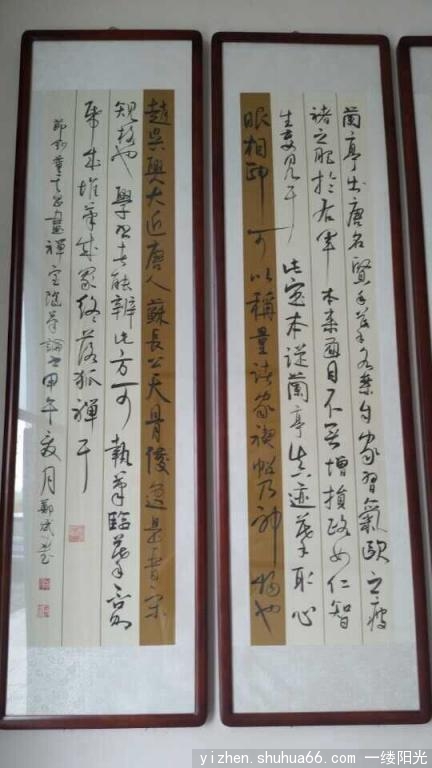 蘭亭出唐名賢手摹各參自家習氣歐之瘦
褚之肥於右軍本來面目不無增損政如仁智
生見耳此定本從蘭亭真迹摹取心
眼相印可以稱量諸家禊帖乃神物也
趙吳興大近唐人蘇長公天骨俊逸是晉宋
規格也學者能辨此方可執筆臨摹否則
紙成堆筆成冢終落狐禪耳
節錄董其昌畫禪室隨筆論書甲午夏月鄭斌
yizhen.shuhua66.com 一缕阳光